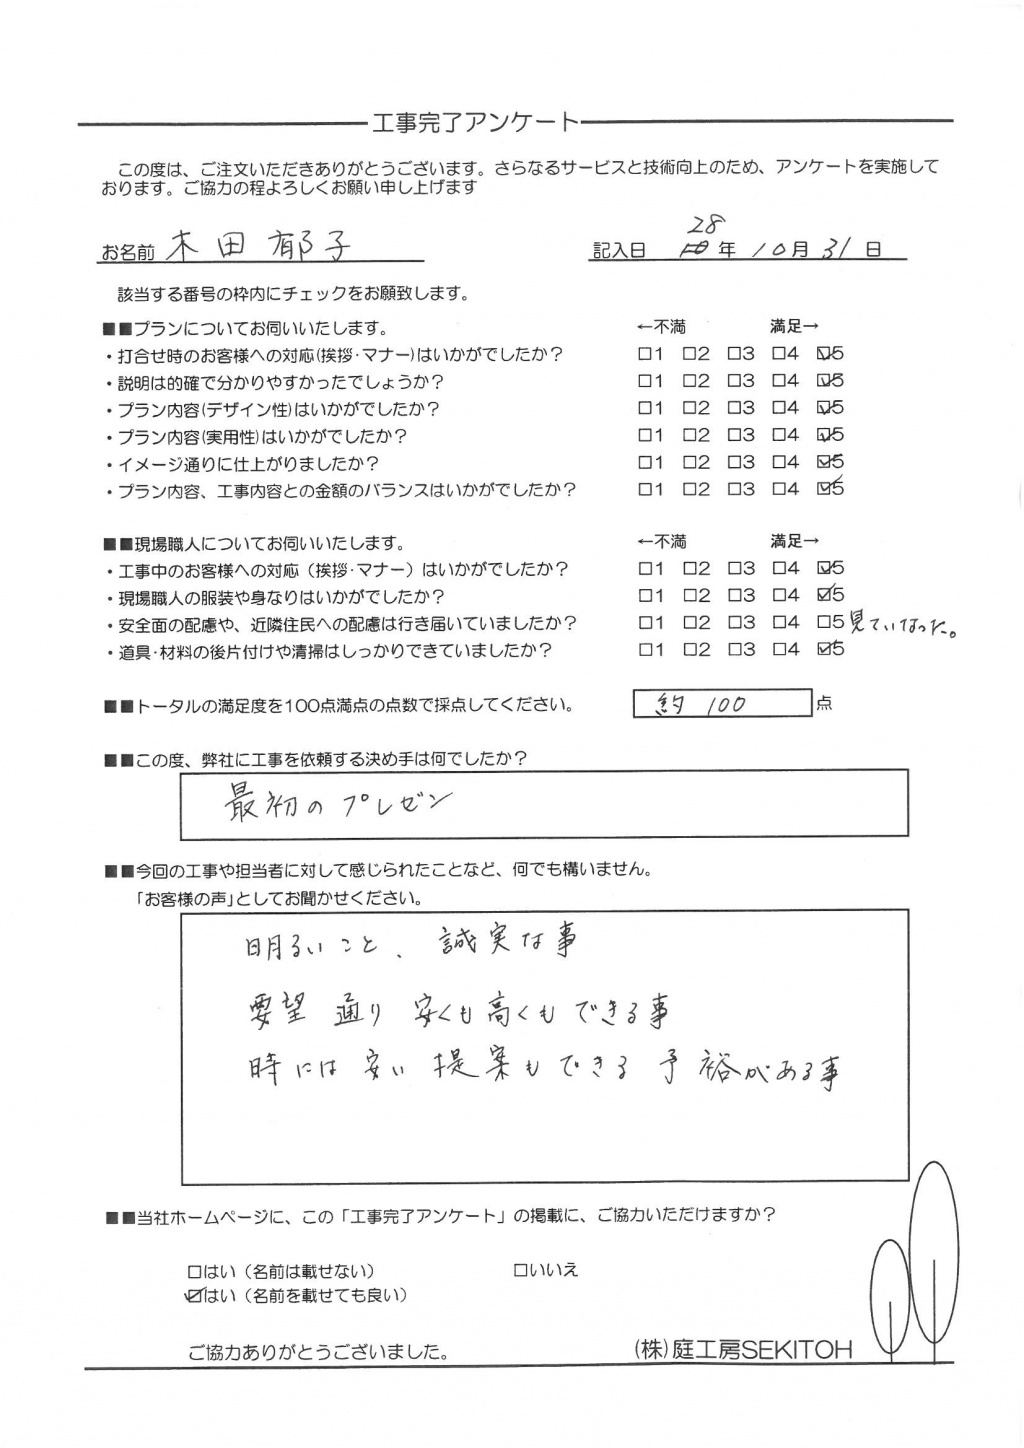 工事完了アンケート
この度は、ご注文いただきありがとうございます。さらなるサービスと技術向上のため、アンケートを実施して
おります。ご協力の程よろしくお願い申し上げます
お名前 木田 郁子
記入日 28年 10月 31日
該当する番号の枠内にチェックをお願致します。
■■プランについてお伺いいたします。 ←不満 満足→
・打合せ時のお客様への対応(挨拶・マナー)はいかがでしたか？ □1 □2 □3 □4 ☑5
・説明は的確で分かりやすかったでしょうか？ □1 □2 □3 □4 ☑5
・プラン内容(デザイン性)はいかがでしたか？ □1 □2 □3 □4 ☑5
・プラン内容(実用性)はいかがでしたか？ □1 □2 □3 □4 ☑5
・イメージ通りに仕上がりましたか？ □1 □2 □3 □4 ☑5
・プラン内容、工事内容との金額のバランスはいかがでしたか？ □1 □2 □3 □4 ☑5
■■現場職人についてお伺いいたします。 ←不満 満足→
・工事中のお客様への対応（挨拶・マナー）はいかがでしたか？ □1 □2 □3 □4 ☑5
・現場職人の服装や身なりはいかがでしたか？ □1 □2 □3 □4 ☑5
・安全面の配慮や、近隣住民への配慮は行き届いていましたか？ □1 □2 □3 □4 □5 見ていなった。
・道具・材料の後片付けや清掃はしっかりできていましたか？ □1 □2 □3 □4 ☑5
■■トータルの満足度を100点満点の点数で採点してください。 約 100 点
■■この度、弊社に工事を依頼する決め手は何でしたか？
最初のプレゼン
■■今回の工事や担当者に対して感じられたことなど、何でも構いません。
「お客様の声」としてお聞かせください。
明るいこと、誠実な事
要望 通り 安くも高くもできる事
時には 安い 提案もできる 予裕がある事
■■当社ホームページに、この「工事完了アンケート」の掲載に、ご協力いただけますか？
□はい（名前は載せない） □いいえ
☑はい（名前を載せても良い）
ご協力ありがとうございました。
(株)庭工房SEKITOH